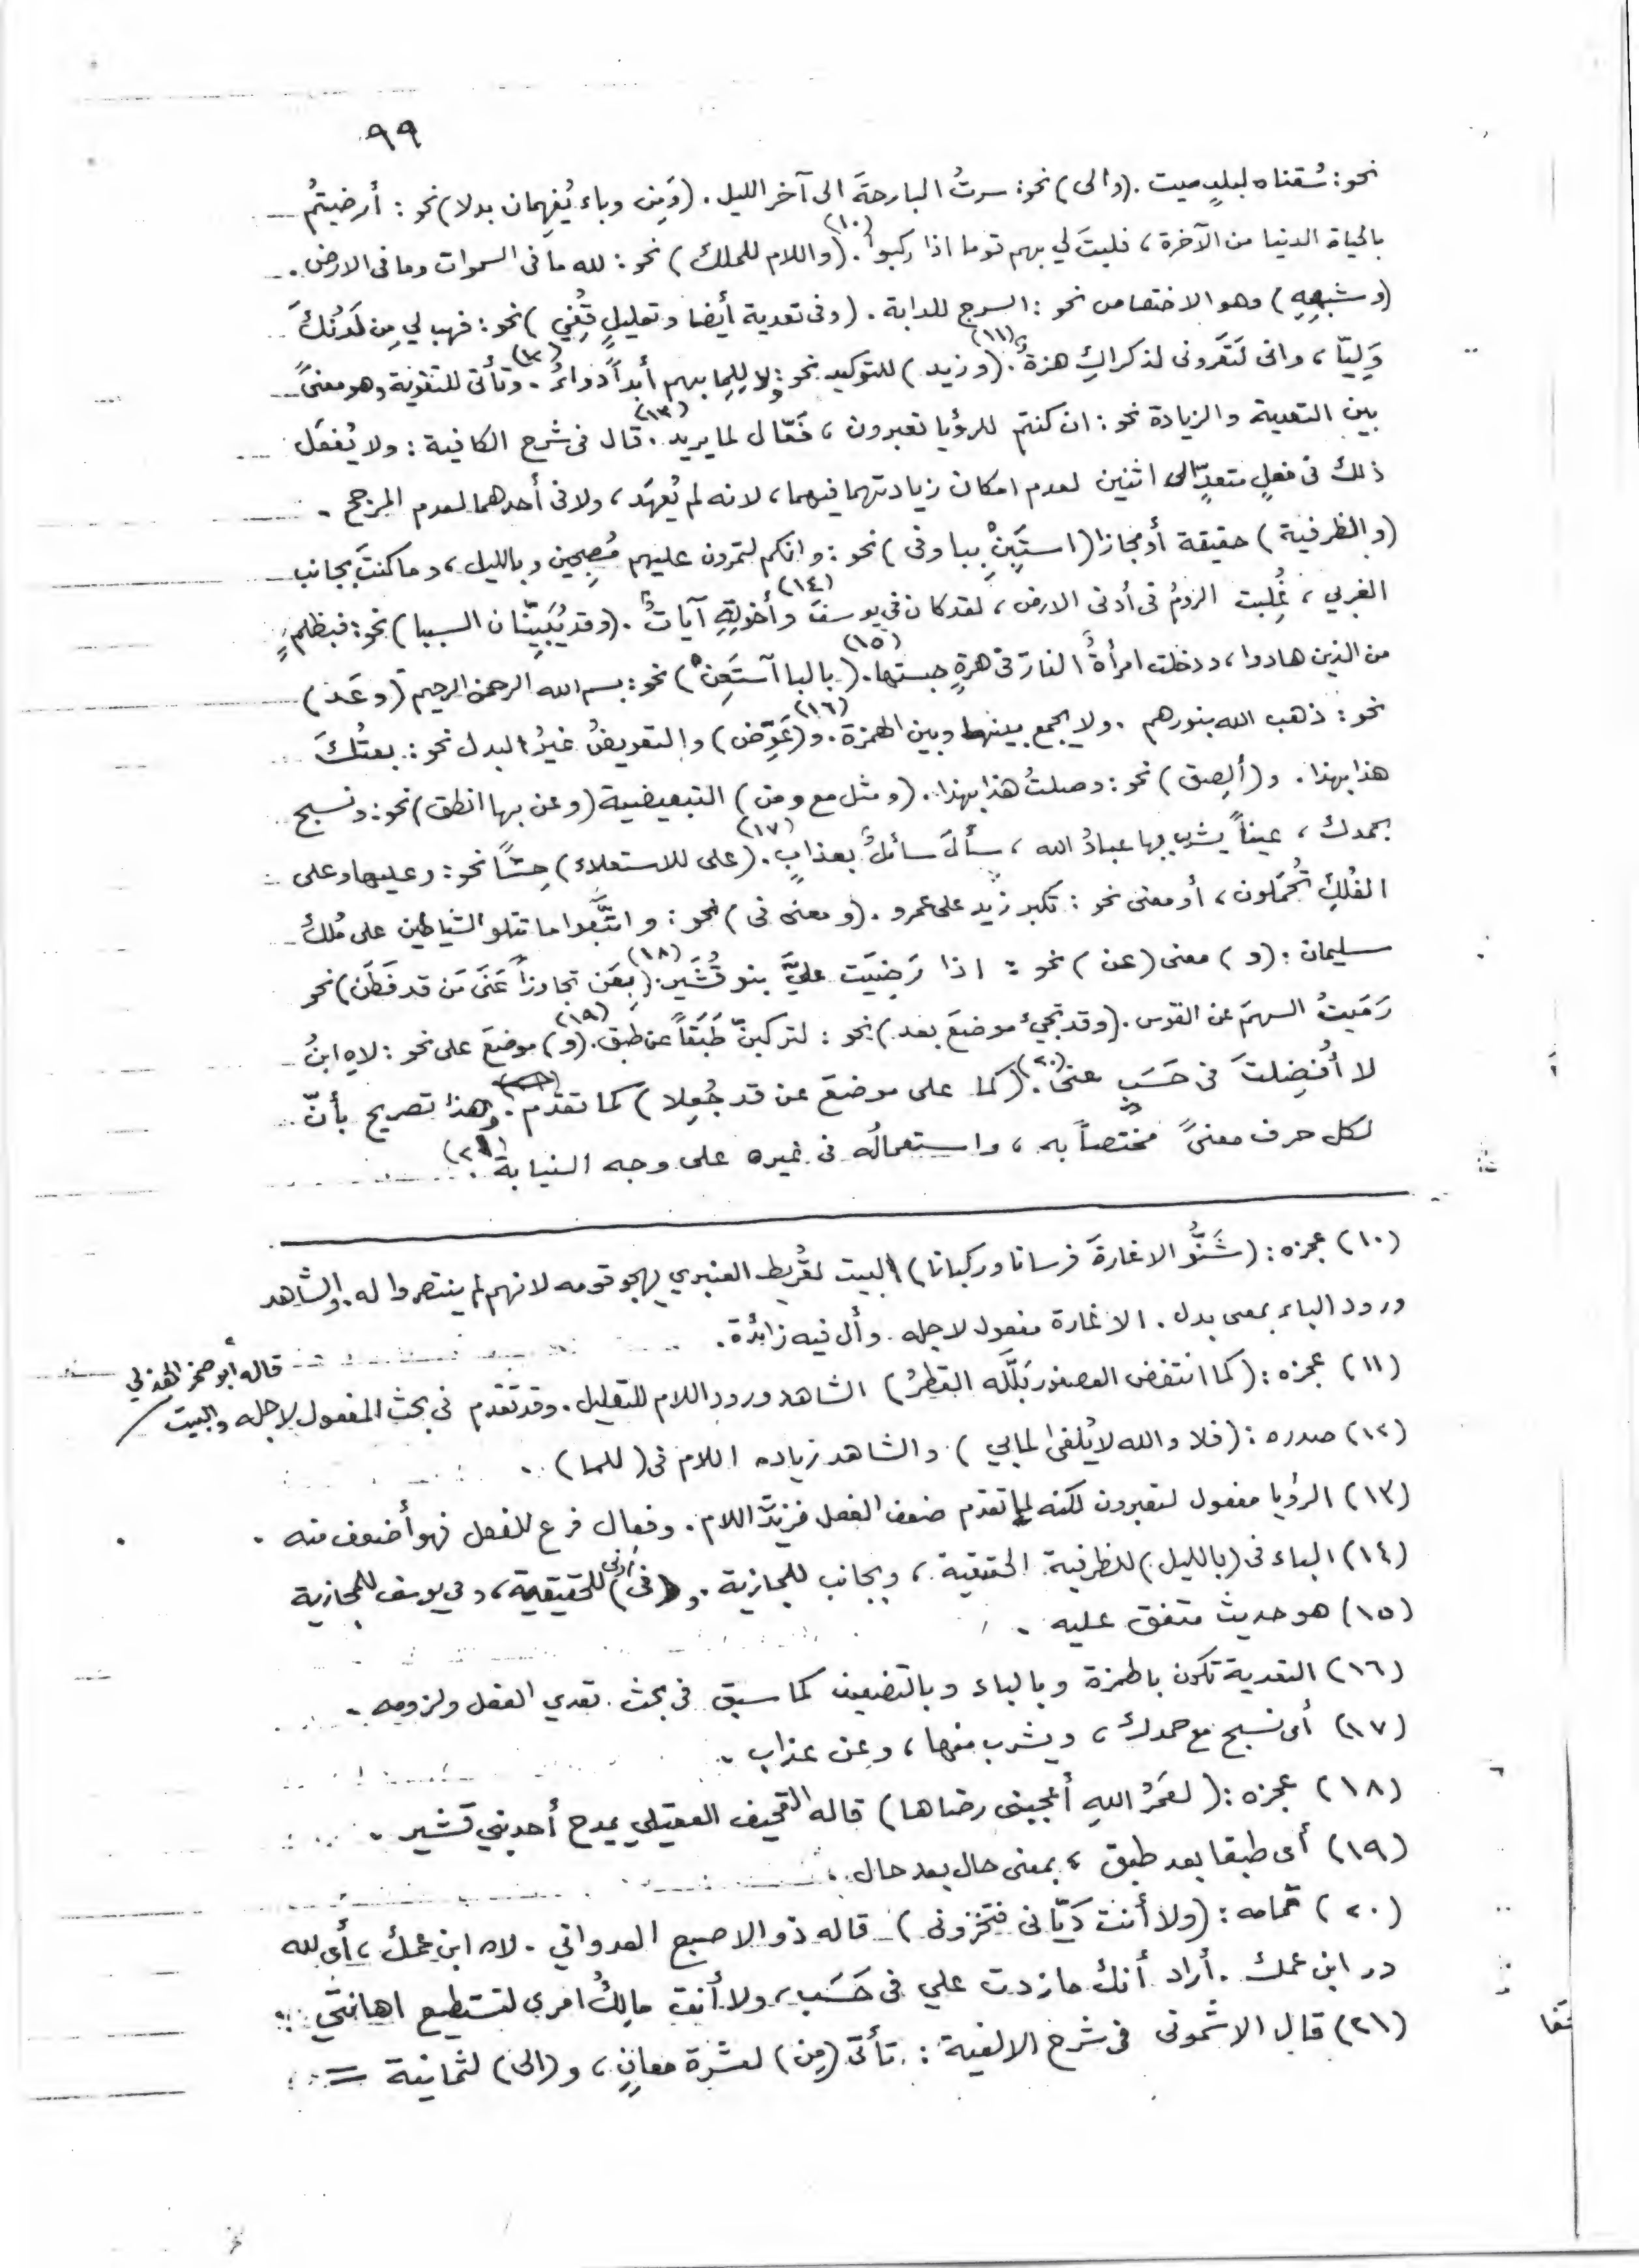 ٩٩
نحو: سُقناه لبلدٍ ميت. (والى) نحو: سرتُ البارحةَ الى آخر الليل. (ومِن وباء يُفهِمان بدلا) نحو: أرضيتمُ
بالحياة الدنيا من الآخرة، فليتَ لي بهم قوما اذا ركبوا (١٠). (واللام للملك) نحو: لله ما فى السموات وما فى الارض.
(وشبهِهِ) وهو الاختصاص نحو: السرج للدابة. (وفى تعدية أيضا وتعليلٍ قُفِي) نحو: فهب لي مِن لَدُنْكَ
وَلِيّا، وانى لَتَعرونى لذكراكِ هزةٌ (١١). (وزيد) للتوكيد نحو: ولا لِلِما بهم أبداً دواءُ (١٢). وتأتى للتقوية وهو معنىً
بين التعدية والزيادة نحو: ان كنتم للرؤيا تعبرون، فَعّال لما يريد (١٣). قال فى شرح الكافية: ولا يُفعَل
ذلك فى فعلٍ متعدٍّ الى اثنين لعدم امكان زيادتهما فيهما، لانه لم يُعهَد، ولا فى أحدهما لعدم المرجح.
(والظرفية) حقيقة أو مجازا (استَبِنْ ببا وفى) نحو: وانكم لتمرون عليهم مُصبِحين وبالليل، وما كنتَ بجانب
الغربي، غُلِبت الرومُ فى أدنى الارض، لقد كان في يوسفَ وأخوتِهِ آياتٌ (١٤). (وقد يُبَيِّنان السببا) نحو: فبظلمٍ
من الذين هادوا، ودخلت امرأةٌ النارَ فى هرةٍ حبستها (١٥). (بالبا آستَعِنْ) نحو: بسم الله الرحمن الرحيم (وعَدِّ)
نحو: ذهب الله بنورهم. ولا يجمع بينها وبين الهمزة (١٦). و(عَوِّض) والتعويضُ غيرُ البدل نحو: بعتُكَ
هذا بهذا. و(ألصِق) نحو: وصلتُ هذا بهذا. (ومثل مع ومن) التبعيضية (وعن بها انطق) نحو: ونسبح
بحمدك، عيناً يشرب بها عبادُ الله، سألَ سائلٌ بعذابٍ (١٧). (على للاستعلاء) حِسّاً نحو: وعليها وعلى
الفُلكِ تُحمَلون، أو معنى نحو: تكبر زيد على عمرو. (ومعنى فى) نحو: واتَّبَعوا ما تتلو الشياطين على مُلكِ
سليمان. (و) معنى (عن) نحو: اذا رَضِيَت عليَّ بنو قُشَيرٍ (١٨). (بعَن تجاوزاً عَنَى مَن قد فَطَن) نحو
رَمَيتُ السهمَ عن القوس. (وقد تجيء موضعَ بعد) نحو: لتركبنّ طَبَقاً عن طبق (١٩). (و) موضعَ على نحو: لاهِ ابنُ
لا أفضلتَ فى حَسَبٍ عنى (٢٠). (كما على موضعَ عن قد جُعِلا) كما تقدّم. وهذا تصريح بأنّ
لكل حرف معنىً مختصاً به، واستعمالُه فى غيره على وجه النيابة (٢١).
(١٠) عجزه: (شَنُّو الاغارةَ فرسانا وركبانا) البيت لقُريط العنبري يهجو قومه لانهم لم ينتصروا له. والشاهد
ورود الباء بمعنى بدل. الاغارة مفعول لاجله. وأل فيه زائدة.
(١١) عجزه: (كما انتفض العصفور بَلَّلَه القطرُ) الشاهد ورود اللام للتعليل. وقد تقدم فى بحث المفعول لاجله والبيت قاله أبو صخر الهذلي
(١٢) صدره: (فلا والله لا يُلفى لما بي) والشاهد زيادة اللام فى (للما).
(١٣) الرؤيا مفعول لتعبرون لكنه لما تقدم ضعف الفعل فزيدت اللام. وفعال فرع للفعل فهو أضعف منه.
(١٤) الباء فى (بالليل) للظرفية الحقيقية، وبجانب للمجازية. و(فى أدنى) للحقيقية، وفي يوسف للمجازية
(١٥) هو حديث متفق عليه.
(١٦) التعدية تكون بالهمزة وبالباء وبالتضعيف كما سبق فى بحث تعدي الفعل ولزومه.
(١٧) أى نسبح مع حمدك، ويشرب منها، وعن عذاب.
(١٨) عجزه: (لعَمرُ اللهِ أعجبنى رضاها) قاله القحيف العقيلي يمدح أحد بني قشير.
(١٩) أى طبقا بعد طبق، بمعنى حال بعد حال.
(٢٠) تمامه: (ولا أنت دَيّانى فتخزونى) قاله ذو الاصبع العدواني. لاه ابن عمك، أى لله
در ابن عمك. أراد أنك ما زدت علي فى حَسَب، ولا أنت مالِكُ امرى لتستطيع اهانتي.
(٢١) قال الاشمونى فى شرح الالفية: تأتى (مِن) لعشرة معانٍ، و(الى) لثمانية =